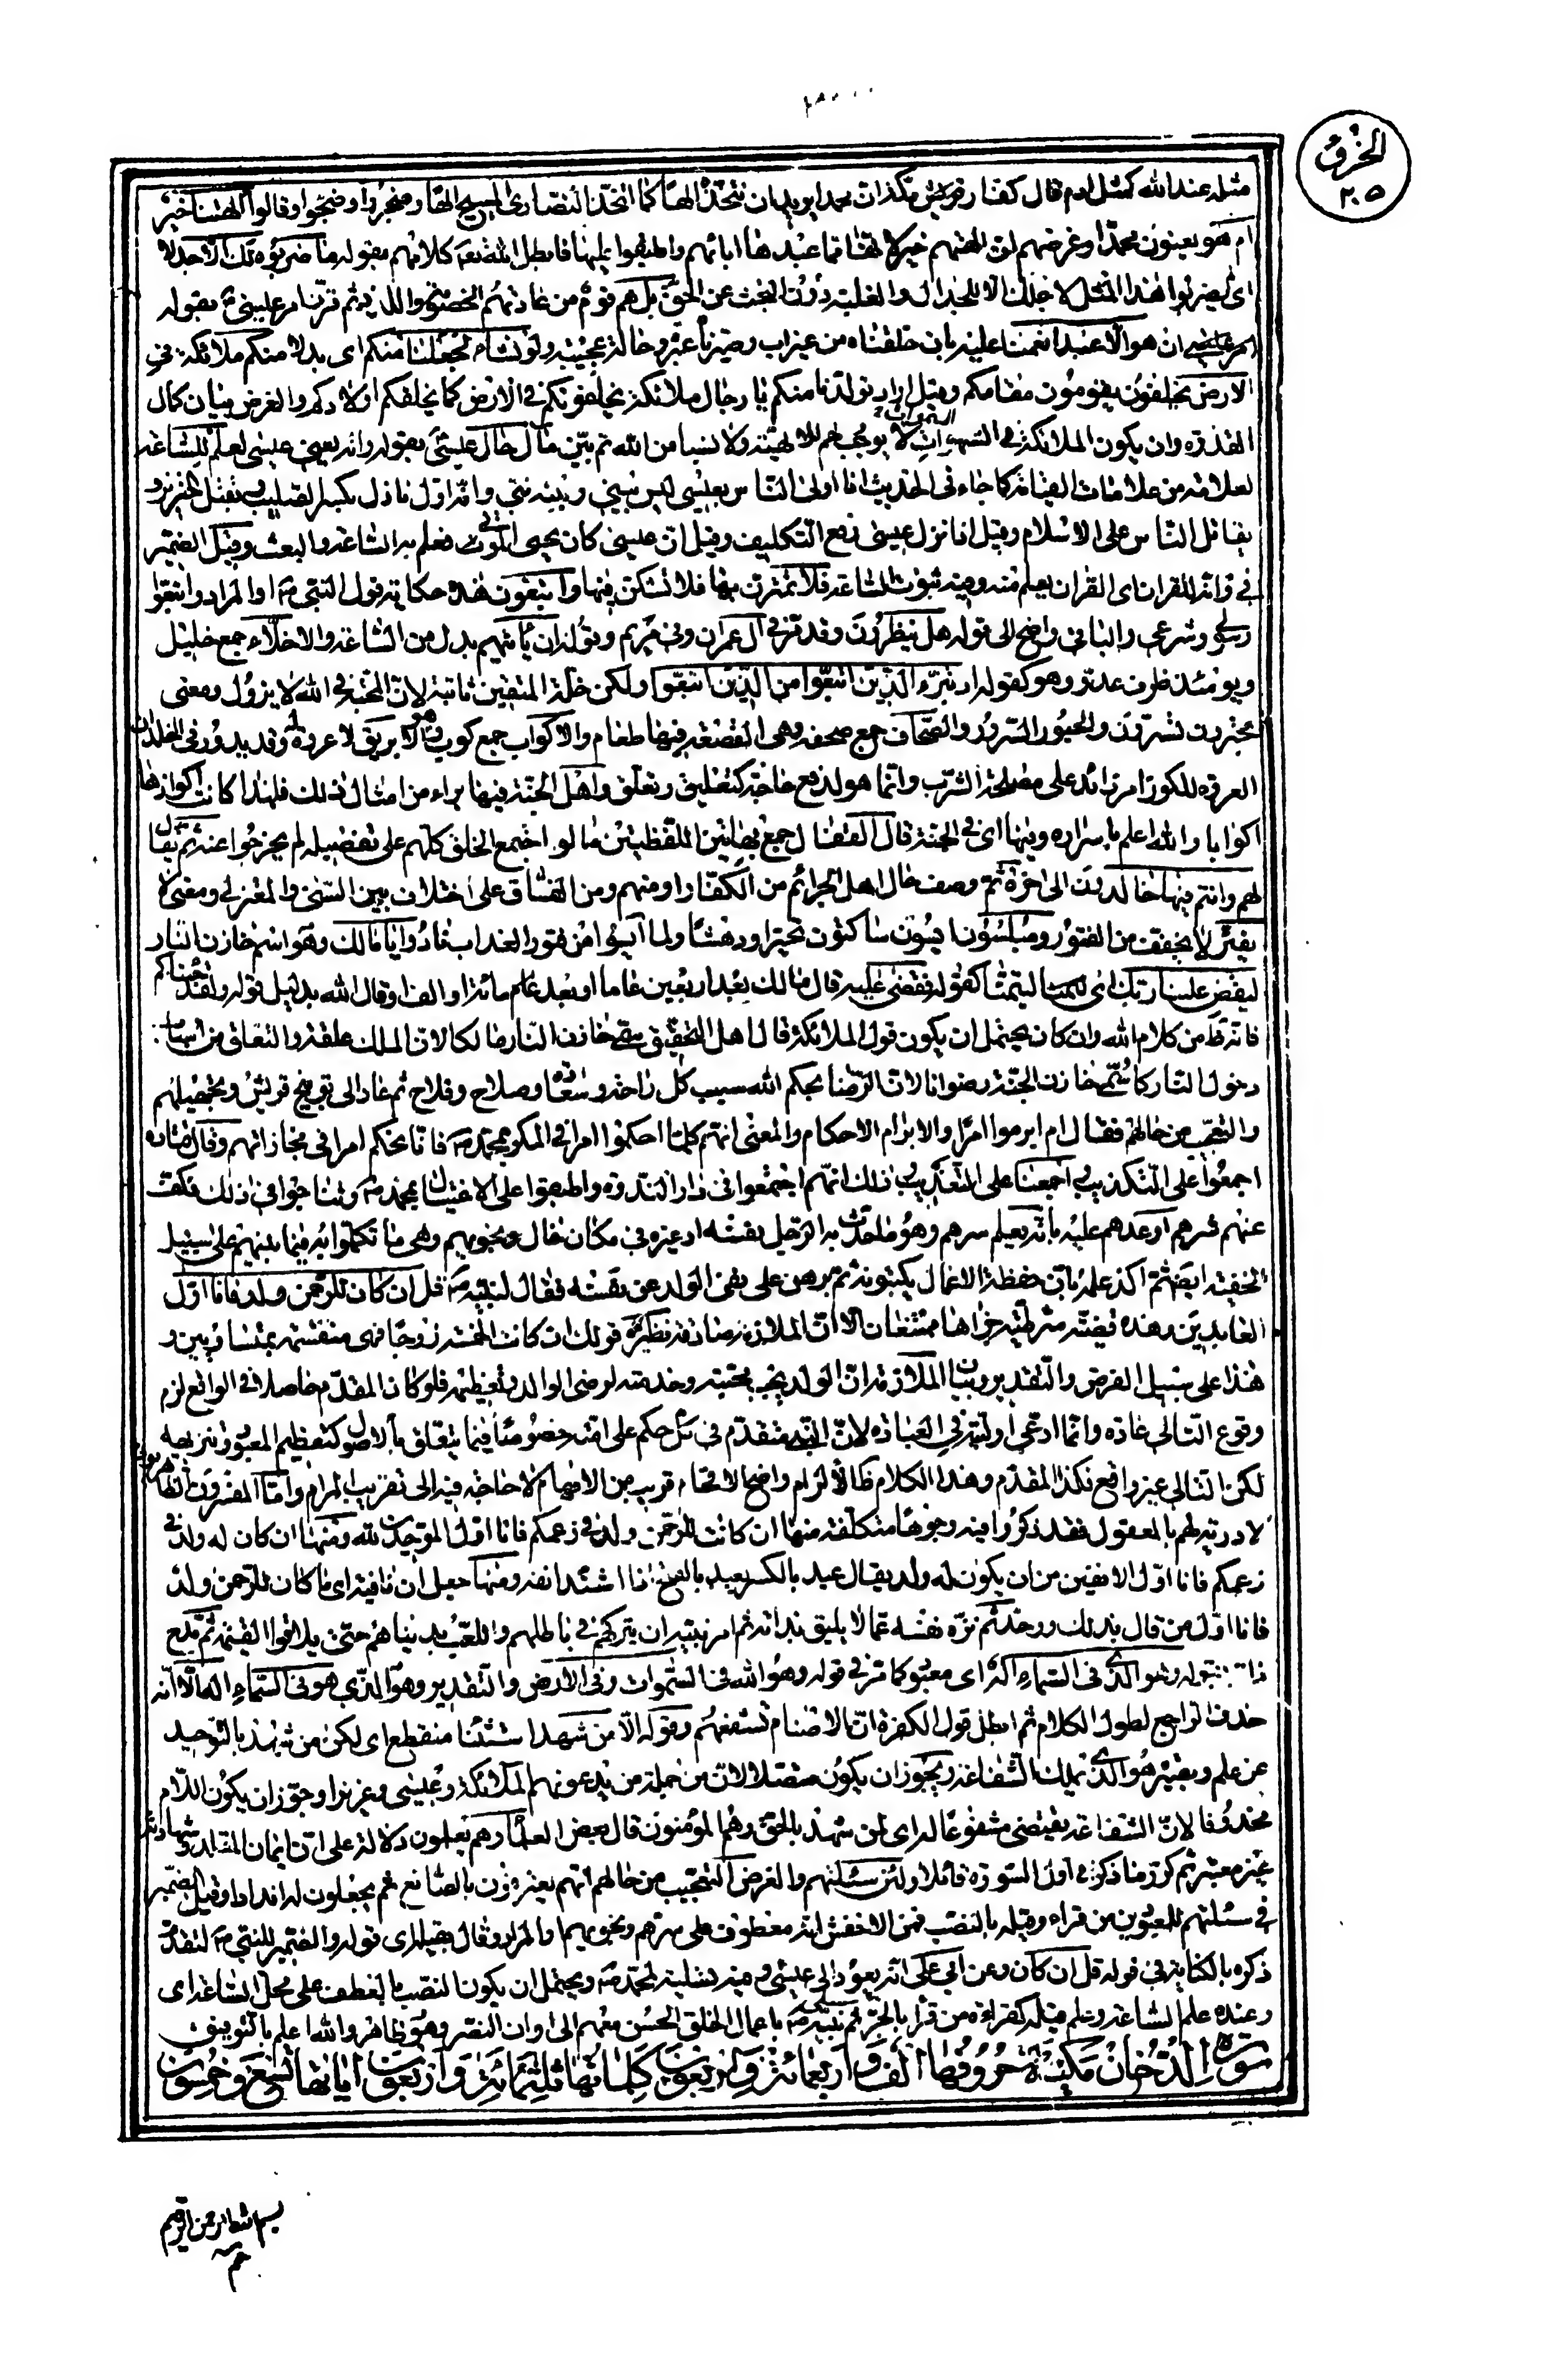 الزخرف
٢٠٥
مثله عند الله كمثل ادم قال كفار قريش هكذا ان محمدا يريد ان نتخذه الها كما اتخذ النصارى المسيح الها وضجروا وضجوا وقالوا االهتنا خير
ام هو يعنون محمدا وغرضهم ان الهتهم خير لانها مما عبدها اباؤهم واطبقوا عليها فابطل الله تعه كلامهم بقوله ما ضربوه لك الا جدلا
اى لم يضربوا هذا المثل لاجلك الا للجدال والغلبة دون البحث عن الحق بل هم قوم من عادتهم الخصومة واللدد ثم قرر امر عيسى ع بقوله
ان هو الا عبد انعمنا عليه بان خلقناه من غير اب وصيرناه عبرة وحالة عجيبة ولو نشاء لجعلنا منكم اى بدلا منكم ملائكة فى
الارض يخلفون يقومون مقامكم وقيل اراد لولدنا منكم يا رجال ملائكة يخلفونكم فى الارض كما يخلفكم اولادكم والغرض بيان كمال
القدرة وان يكون الملائكة فى السموات لا يوجب لهم الالهية ولا نسبا من الله ثم بين مال حال عيسى بقوله وانه يعنى عيسى لعلم للساعة
لعلامة من علامات القيامة كما جاء فى الحديث انا اولى الناس بعيسى ليس بينى وبينه نبى وانه اول نازل يكسر الصليب ويقتل الخنزير و
يقاتل الناس على الاسلام وقيل اذا نزل عيسى رفع التكليف وقيل ان عيسى كان يحيى الموتى فعلم به الساعة والبعث وقيل الضمير
فى وانه للقران اى القران يعلم منه وفيه ثبوت الساعة فلا تمترن بها فلا تشكن فيها واتبعون هذه حكاية قول النبى صه او المراد واتبعوا
رسلى وشرعى والباقى واضح الى قوله هل ينظرون وقد مر فى آل عمران وفى مريم وقوله ان تأتيهم بدل من الساعة والاخلاء جمع خليل
ويومئذ ظرف عدو وهو كقوله اذ تبرء الذين اتبعوا من الذين اتبعوا ولكن خلة المتقين ثابتة لان المحبة فى الله لا يزول ومعنى
تحبرون تسرون والحبور السرور والصحاف جمع صحفة وهى القصعة فيها طعام والاكواب جمع كوب وهو الابريق لا عروة له وقد يدور فى الخلد ان
العروة للكوز امر زائد على مصلحة الشرب وانما هو لدفع حاجة كتعليق وتعلق واهل الجنة فيها براء من امثال ذلك فلهذا كانت اكوازها
اكوابا والله اعلم باسراره وفيها اى فى الجنة قال القفال جمع بهاتين اللفظتين ما لو اجتمع الخلق كلهم على تفصيله لم يخرجوا عنه ثم يقال
لهم وانتم فيها خالدون الى اخره ثم وصف حال اهل الجرائم من الكفار او منهم ومن الفساق على اختلاف بين السنى والمعتزلى ومعنى لا
يفتر لا يخفف من الفتور ومبلسون ايسون ساكتون تحيرا ودهشا ولما ايسوا من فتور العذاب نادوا يا مالك وهو اسم خازن النار
ليقض علينا ربك اى ليمتنا كقوله فقضى عليه قال مالك بعد اربعين عاما او بعد عام مائة او الف او قال الله بدليل قوله ولقد جئناكم
فانه من كلام الله وان كان يحتمل ان يكون قول الملائكة قال اهل التحقيق سمى خازن النار مالكا لان الملك علقة والتعلق من اسباب
دخول النار كما سمى خازن الجنة رضوانا لان الرضا بحكم الله سبب كل راحة وسعادة وصلاح وفلاح ثم عاد الى توبيخ قريش وتجهيلهم
والتعجب من حالهم فقال ام ابرموا امرا والابرام الاحكام والمعنى انهم كلما احكموا امرا فى المكر بمحمد صه فانا نحكم امرا فى مجازاتهم وقال قتادة
اجمعوا على التكذيب اجمعنا على التعذيب وذلك انهم اجتمعوا فى دار الندوة واطبقوا على الاغتيال بمحمد صه وتناجوا فى ذلك فكف
عنهم شرهم اوعدهم عليه بانه يعلم سرهم وهو ما حدث به الرجل نفسه او غيره فى مكان خال ونجويهم وهى ما تكلموا به فيما بينهم على سبيل
الخفية ايضا ثم اكد علمه بان حفظة الاعمال يكتبونه ثم برهن على نفى الولد عن نفسه فقال لنبيه صه قل ان كان للرحمن ولد فانا اول
العابدين وهذه قضية شرطية جزاها ممتنعان الا ان الملازمة صادقة نظيره قولك ان كانت الخمسة زوجا فهى منقسمة بمتساويين و
هذا على سبيل الفرض والتقدير وبيان الملازمة ان الولد يجب محبته وخدمته لرضى الوالد وتعظيمه فلو كان المقدم حاصلا فى الواقع لزم
وقوع التالى عادة وانما ادعى اوليته فى العبادة لان النبى متقدم فى كل حكم على امته خصوصا فيما يتعلق بالاصول كتعظيم المعبود وتنزيهه
لكن التالى غير واقع فكذا المقدم وهذا الكلام ظاهر الالزام واضح الافحام قريب من الافهام لا حاجة فيه الى تقريب المرام واما المفسرون الظاهريون
لا دربة لهم بالمعقول فقد ذكروا فيه وجوها متكلفة منها ان كانت للرحمن ولد فى زعمكم فانا اول الموحدين لله ومنها ان كان له ولد فى
زعمكم فانا اول الانفين من ان يكون له ولد يقال عبد بالكسر يعبد بالفتح اذا اشتد انفه ومنها جعل ان نافية اى ما كان للرحمن ولد
فانا اول من قال بذلك ووحد ثم نزه نفسه عما لا يليق بذاته ثم امر نبيه ان يتركهم فى باطلهم واللعب بدنياهم حتى يلاقوا القيمة ثم مدح
ذاته بقوله وهو الذى فى السماء اله اى معبود كما مر فى قوله وهو الله فى السموات وفى الارض والتقدير وهو الذى هو فى السماء اله الا انه
حذف الراجع لطول الكلام ثم ابطل قول الكفرة ان الاصنام تشفعهم وقوله الا من شهد استثنا منقطع اى لكن من شهد بالتوحيد
عن علم وبصيرة هو الذى يملك الشفاعة ويجوز ان يكون متصلا لان من جملة من يدعونهم الملائكة وعيسى وعزيرا وجوز ان يكون اللام
محذوفا لان الشفاعة يقتضى مشفوعا له اى لمن شهد بالحق وهم المؤمنون قال بعض العلما وهم يعلمون دلالة على ان ايمان المقلد وشهادته
غير معتبر ثم كرر ما ذكر فى اول السورة قائلا ولئن سئلتهم والغرض التعجيب من حالهم انهم يعترفون بالصانع ثم يجعلون له اندادا وقيل الضمير
فى سئلتهم للمعبودين من قراء وقيله بالنصب فعن الاخفش انه معطوف على سرهم ونجويهم والمراد وقال قيله اى قوله والضمير للنبى صه لتقدم
ذكره بالكناية فى قوله قل ان كان وعن ابى على انه يعود الى عيسى وفيه تسلية لمحمد صه ويحتمل ان يكون النصب بالعطف على محل الساعة اى
وعنده علم الساعة وعلم قيله كقراءة من قرأ بالجر ثم سلى نبيه صه باعمال الخلق الحسن معهم الى اوان النصر وهو ظاهر والله اعلم بالتوفيق
سورة الدخان مكية حروفها الف واربعمائة واربعون كلماتها ثلثمائة واربعون اياتها تسع وخمسون
بسم الله الرحمن الرحيم
حم